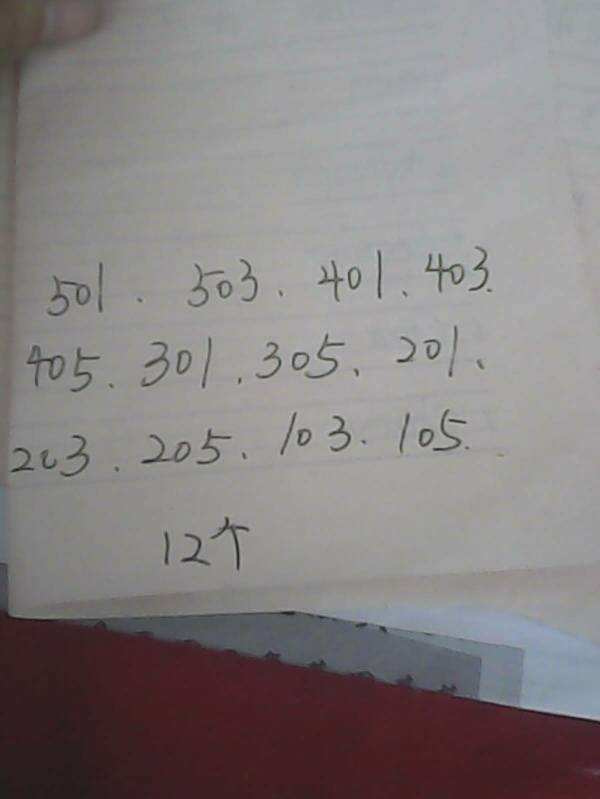 501、503、401、403、
405、301、305、201、
203、205、103、105.
12个